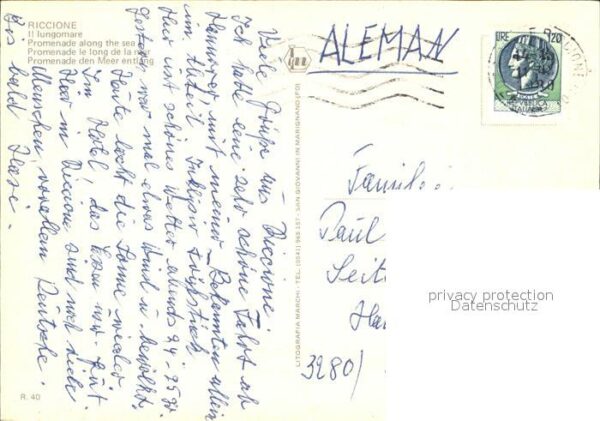 RICCIONE
Il lungomare
Promenade along the sea
Promenade le long de la mer
Promenade den Meer entlang
Viele Grüße aus Riccione.
Ich hatte eine sehr schöne Fahrt ab
Hannover, mit meiner Bekannten allein
im Abteil Inklusiv Frühstück
Hier ist schönes Wetter abends 24-25 gr.
Gestern war mal etwas Wind u. bewölkt.
Heute lacht die Sonne wieder
Im Hotel, das Essen gut.
Hier in Riccione sind noch viele
Menschen, vor allem Deutsche.
Bis bald
R. 40
LITOGRAFIA MARCHI - TEL. (0541) 963 157 - SAN GIOVANNI IN MARIGNANO (FO)
ALEMAN
LIRE 120
REPUBBLICA
ITALIANA
Famil
Paul
Seit
Ha
3280/
privacy protection
Datenschutz